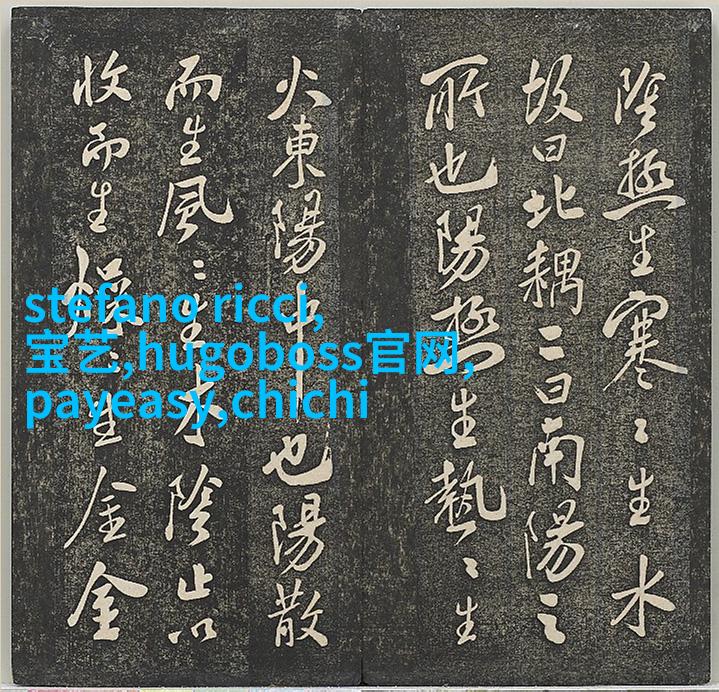 陰極生寒〻生水
故曰北耦二曰南陽之
所也陽極生熱〻生
火東陽中也陽散
而生風〻生木陰止以
收而生燥〻生金金
stefano ricci,
宝艺,hugoboss官网,
payeasy,chichi